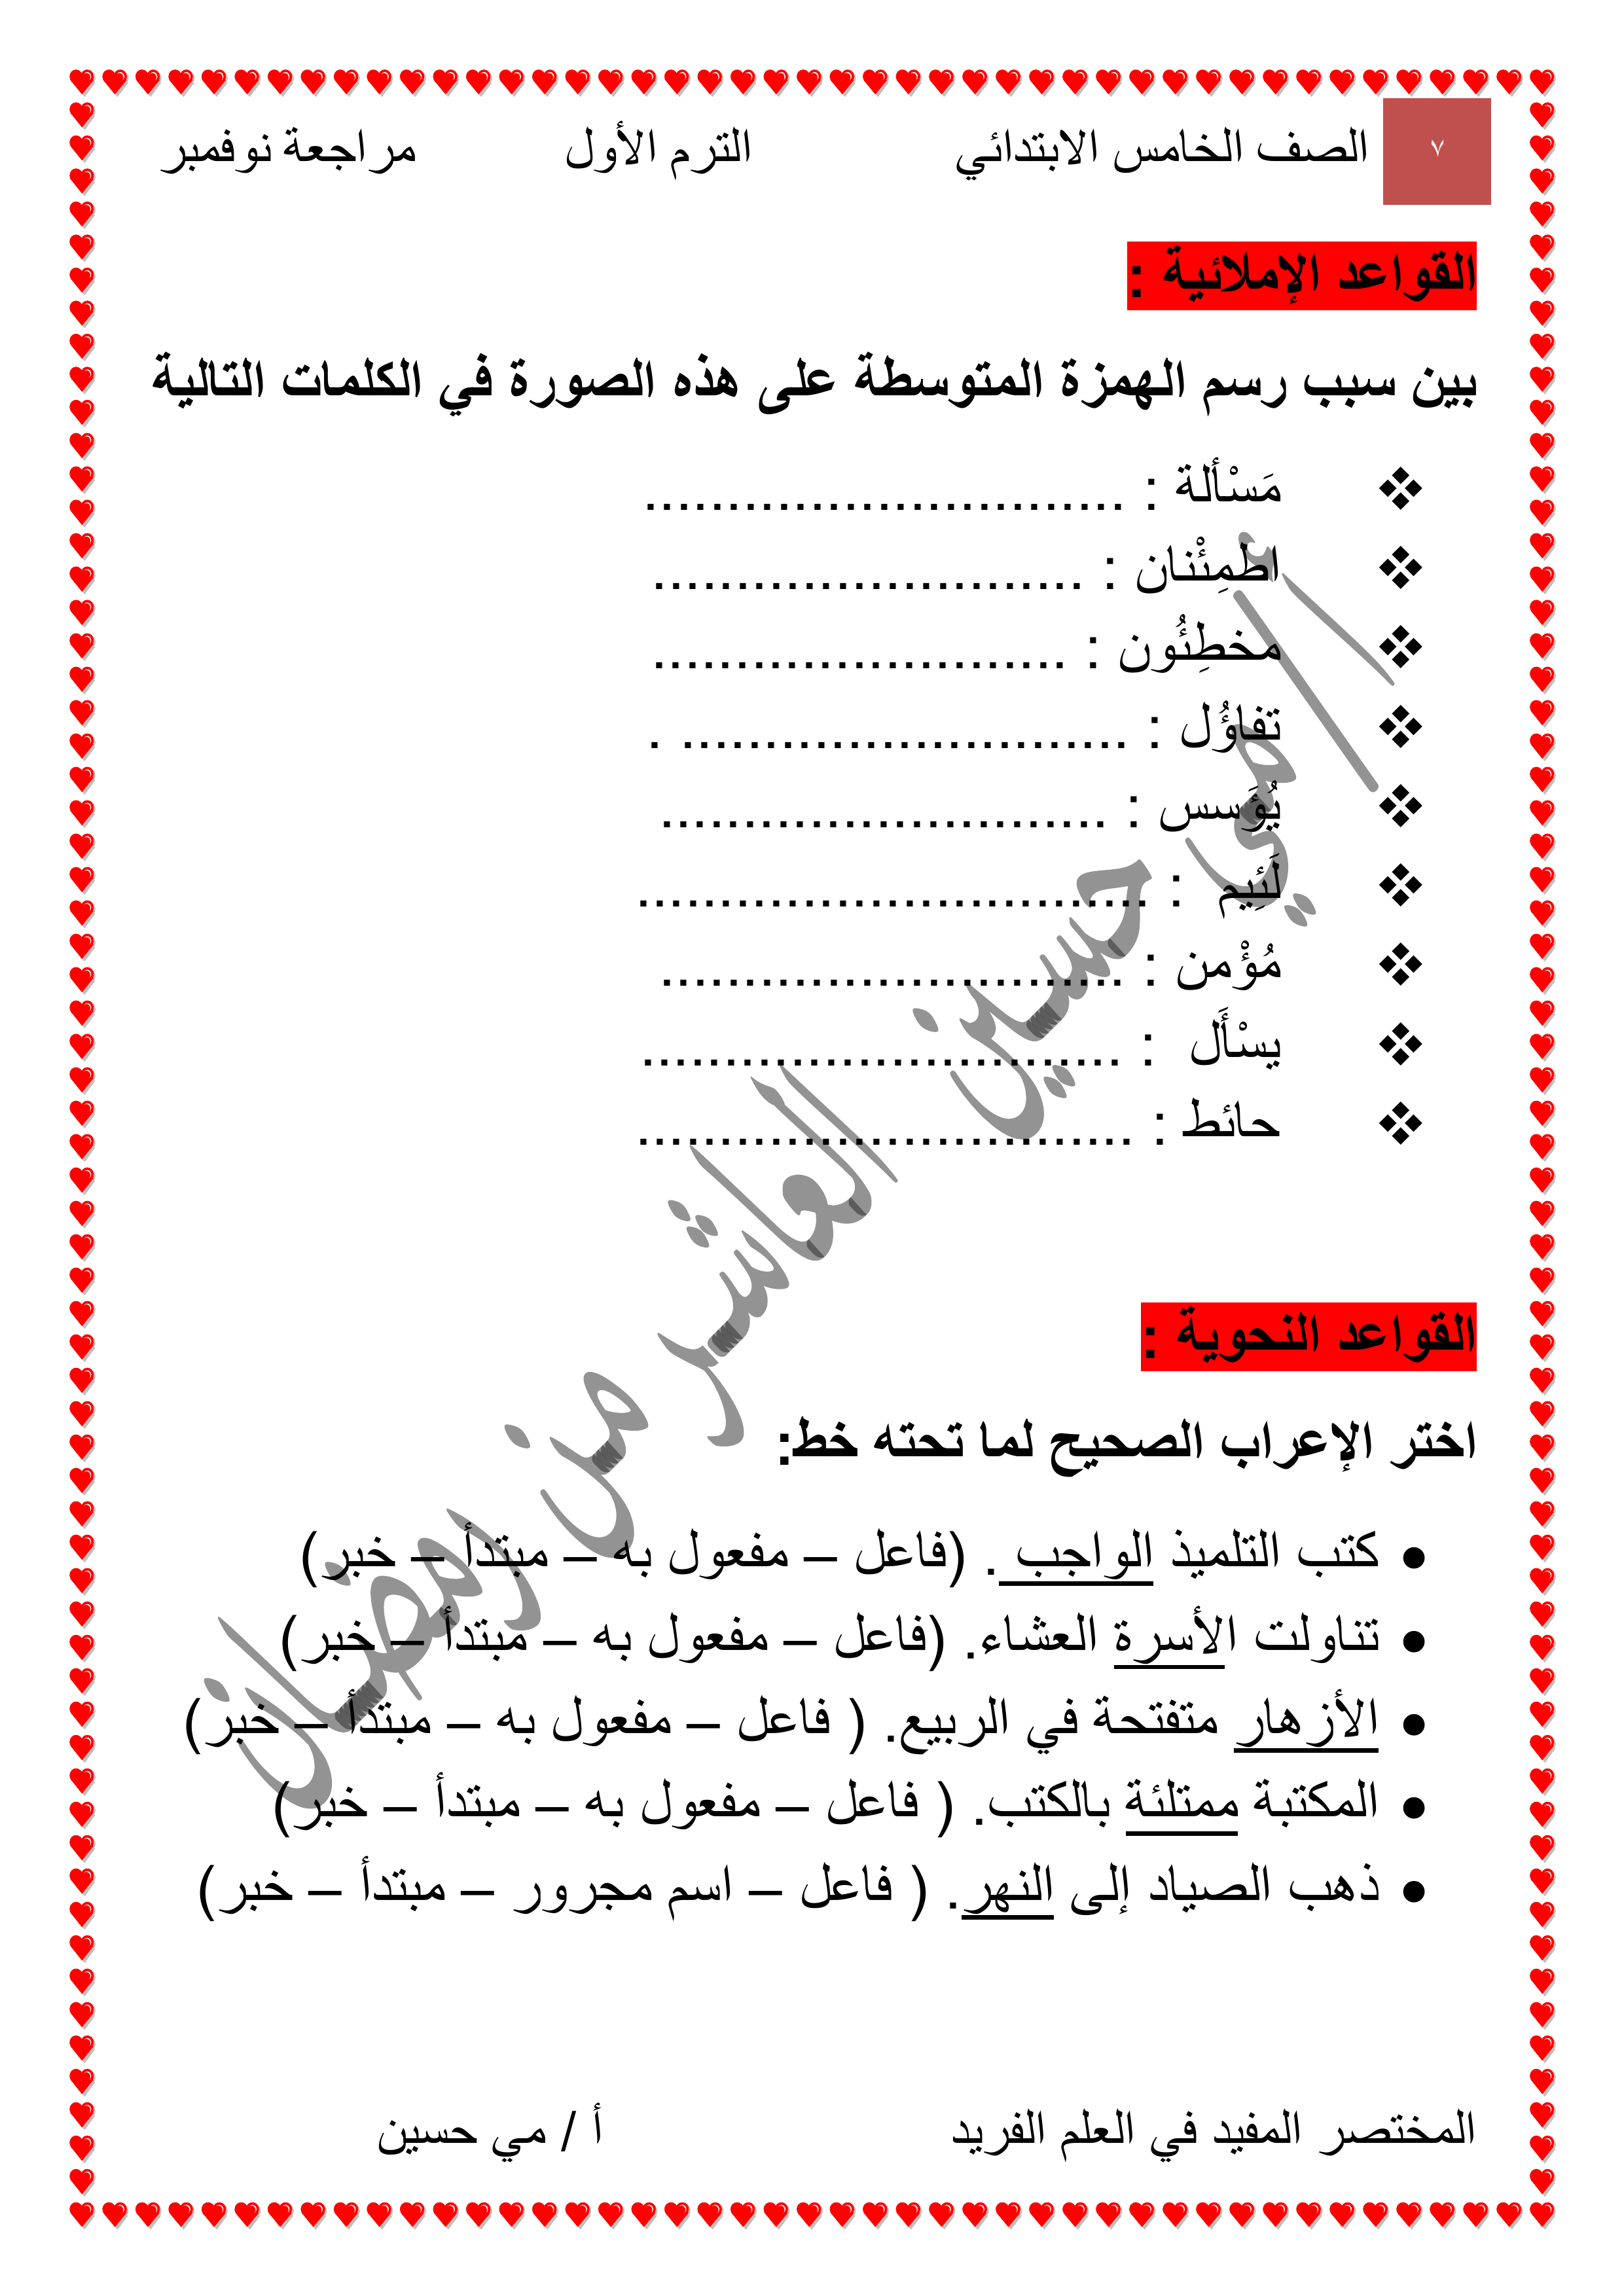 ٧ الصف الخامس الابتدائي الترم الأول مراجعة نوفمبر
القواعد الإملائية :
بين سبب رسم الهمزة المتوسطة على هذه الصورة في الكلمات التالية
❖ مَسْألة : .............................
❖ اطمِئْنان : ..........................
❖ مخطِئُون : .........................
❖ تفاؤُل : ........................... .
❖ يُؤَسس : ...........................
❖ لَئِيم : ...............................
❖ مُؤْمن : ............................
❖ يسْأَل : .............................
❖ حائط : ..............................
القواعد النحوية :
اختر الإعراب الصحيح لما تحته خط:
• كتب التلميذ الواجب . (فاعل – مفعول به – مبتدأ – خبر)
• تناولت الأسرة العشاء. (فاعل – مفعول به – مبتدأ – خبر)
• الأزهار متفتحة في الربيع. ( فاعل – مفعول به – مبتدأ – خبر)
• المكتبة ممتلئة بالكتب. ( فاعل – مفعول به – مبتدأ – خبر)
• ذهب الصياد إلى النهر. ( فاعل – اسم مجرور – مبتدأ – خبر)
أ / مي حسين العاشر من رمضان
المختصر المفيد في العلم الفريد أ / مي حسين